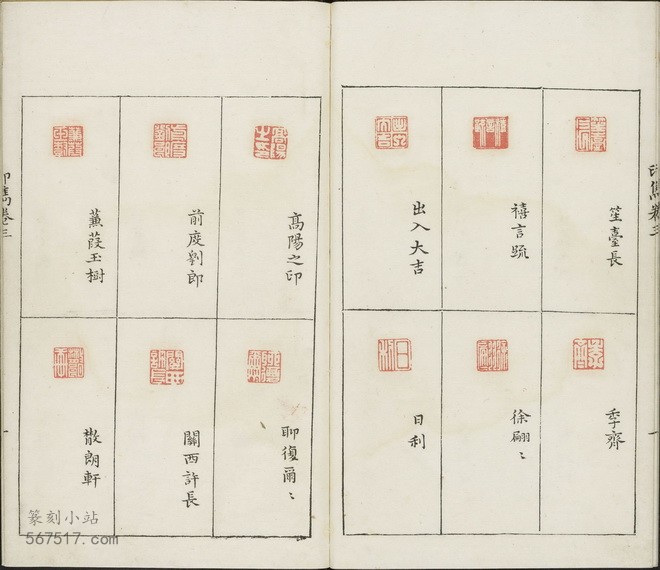 笙臺長
禧言疏
出入大吉
季齊
徐翩〻
日利
高陽之印
前度劉郎
蒹葭玉樹
聊復爾〻
關西許長
散朗軒
卷三
卷三
篆刻小站
567517.com